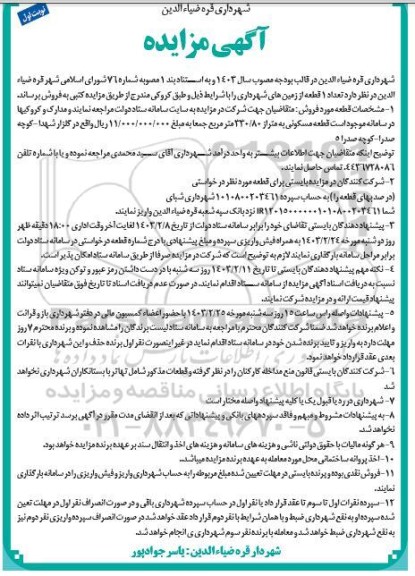 شهرداری قره ضیاء الدین
نوبت اول
آگهی مزایده
شهرداری قره ضیاء الدین در قالب بودجه مصوب سال ۱۴۰۳ و به استناد بند ۱ مصوبه شماره ۷۶ شورای اسلامی شهر قره ضیاء
الدین در نظر دارد تعداد ۱ قطعه از زمین های شهرداری را با شرایط ذیل و طبق کروکی مندرج از طریق مزایده کتبی به فروش برساند.
۱- مشخصات قطعه مورد فروش: متقاضیان جهت شرکت در مزایده به سایت سامانه ستاد دولت مراجعه نمایند و مدارک و کروکیها
در سامانه موجود است قطعه مسکونی به متراژ ۳۳۰/۸۰ متر مربع جمعا به مبلغ ۱۱/۰۰۰/۰۰۰/۰۰۰ ریال واقع در گلزار شهدا-کوچه
صدرا-کوچه صدرا ۵
توضیح اینکه متقاضیان جهت اطلاعات بیشتر به واحد درآمد شهرداری آقای سعید محمدی مراجعه نموده و یا با شماره تلفن
۰۴۴۳۶۷۲۸۰۸۶ تماس حاصل نمایند.
۲- شرکت کنندگان در مزایده بایستی برای قطعه مورد نظر در خواستی
(در صد بهای قطعه را) به حساب سپرده ۰۱۰۸۰۰۲۰۳۴۶۱ شهرداری شبای
شما نزد بانک سپه شعبه قره ضیاء الدین واریز نمایند.
۳- پیشنهاد دهندگان بایستی تقاضای خود را برابر سامانه ستاد دولت از تاریخ ۱۴۰۳/۲/۸ لغایت آخر وقت اداری ۱۸:۰۰ دقیقه ظهر
روز دوشنبه مورخه ۱۴۰۳/۲/۲۴ به همراه فیش واریزی سپرده و مبلغ پیشنهادی با درج شماره قطعه درخواستی در سامانه ستاد دولت
برابر مراحل سامانه بارگذاری نمایند لازم به توضیح است که شرکت در مزایده صرفا از طریق سامانه ستاد امکان پذیر است.
۴- نکته مهم پیشنهاد دهندگان بایستی تا تاریخ ۱۴۰۳/۲/۱۱ روز سه شنبه با در دست داشتن رمز عبور و توکن ویژه سامانه ستاد
نسبت به دریافت اسناد آگهی مزایده از سامانه ستاد اقدام نمایند، در صورت عدم دریافت اسناد تا تاریخ فوق متقاضیان نمیتوانند
پیشنهاد قیمت ارائه و در مزایده شرکت نمایند.
۵- پیشنهادات واصله راس ساعت ۱۵ روز سه شنبه مورخه ۱۴۰۳/۲/۲۵ با حضور اعضاء کمیسیون عالی در دفتر شهرداری باز و قرائت
و اعلام برنده خواهد شد ضمنا شرکت کنندگان محترم با مراجعه به سامانه ستاد لیست برندگان را مشاهده نموده و برنده محترم ۷ روز
مهلت دارد به واریز و تایید برنده شدن خود در سامانه ستاد اقدام نماید در غیر اینصورت نفر اول برنده حذف و این شهرداری با نفرات
بعدی عقد قرارداد خواهد نمود.
۶- شرکت کنندگان بایستی قانون منع مداخله کارکنان را در نظر گرفته و قطعات مذکور شامل تهاتر با بستانکاران شهرداری نخواهد
شد
۷- شهرداری در رد یا قبول یک یا کلیه پیشنهاد واصله مختار است
۸- به پیشنهادات مشروط و مبهم و فاقد سپرده های بانکی و پیشنهاداتی که بعد از انقضای مدت مقرر در آگهی برسد ترتیب اثر داده
نخواهد شد.
۹- هر گونه مالیات یا حقوق دولتی ناشی و هزینه های سامانه و هزینه های اخذ و انتقال سند بر عهده برنده مزایده خواهد بود.
۱۰- اخذ پروانه ساختمانی محل مورد معامله به عهده برنده مزایده میباشد.
۱۱- فروش نقدی بوده و برنده بایستی در مهلت تعیین شده مبلغ مربوطه را به حساب شهرداری واریز و فیش واریزی را در سامانه بارگذاری
نمایند.
۱۲- سپرده نفرات اول تا سوم تا عقد قرار داد با نفر اول در حساب سپرده شهرداری باقی و در صورت انصراف نفر اول در مهلت تعیین
شده سپرده او به نفع شهرداری ضبط و با همان شرایط با نفر دوم قرار داد عقد خواهد شد و در صورت انصراف سپرده واریزی نفر دوم نیز
به نفع شهرداری ضبط خواهد شد و معامله با برنده نفر سوم شهرداری انجام خواهد شد.
شهردار قره ضیاء الدین: یاسر جوادپور
پایگاه اطلاع رسانی مناقصه و مزایده